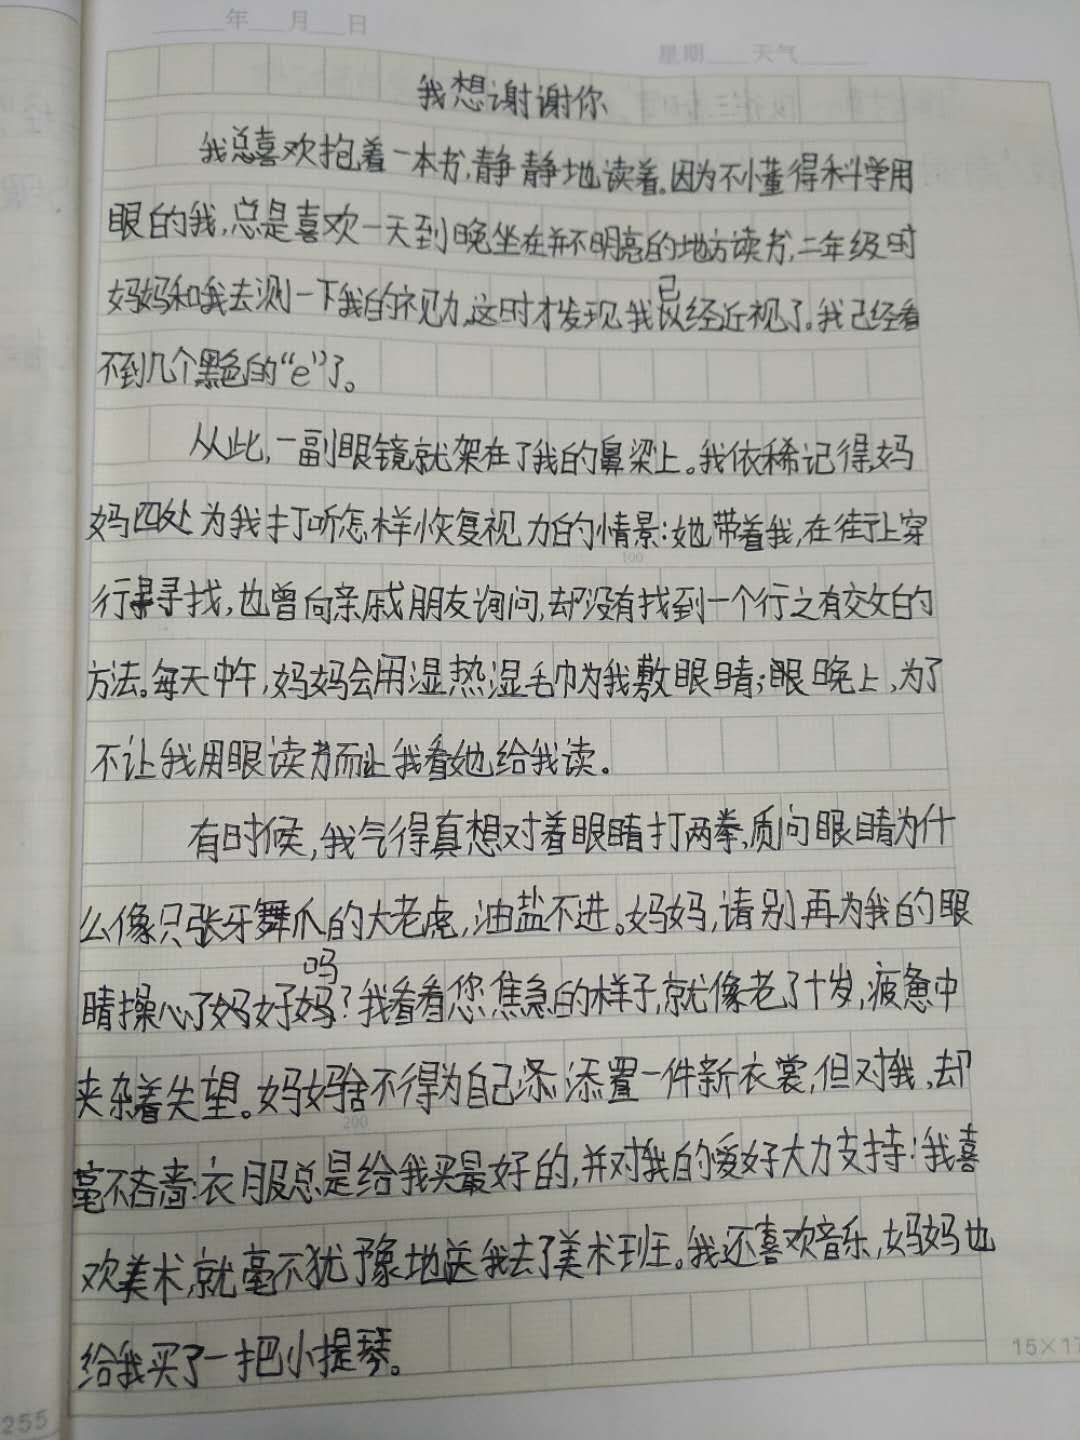 年 月 日
星期 天气
我想谢谢你
我总喜欢抱着一本书,静静地读着。因为不懂得科学用
眼的我,总是喜欢一天到晚坐在并不明亮的地方读书,二年级时
妈妈和我去测一下我的视力,这时才发现我已经近视了。我已经看
不到几个黑色的“e”了。
从此,一副眼镜就架在了我的鼻梁上。我依稀记得,妈
妈四处为我打听怎样恢复视力的情景:她带着我,在街上穿
100
行寻寻找,也曾向亲戚朋友询问,却没有找到一个行之有效的
方法。每天中午,妈妈会用湿热湿毛巾为我敷眼睛;眼晚上,为了
不让我用眼读书而让我看她给我读。
有时候,我气得真想对着眼睛打两拳,质问眼睛为什
么像只张牙舞爪的大老虎,油盐不进。妈妈,请别再为我的眼
睛操心了妈好吗?我看看您焦急的样子,就像老了十岁,疲惫中
夹杂着失望。妈妈舍不得为自己添添置一件新衣裳,但对我,却
200
毫不吝啬:衣服总是给我买最好的,并对我的爱好大力支持:我喜
欢美术,就毫不犹豫地送我去了美术班。我还喜欢音乐,妈妈也
给我买了一把小提琴。
15×17
255